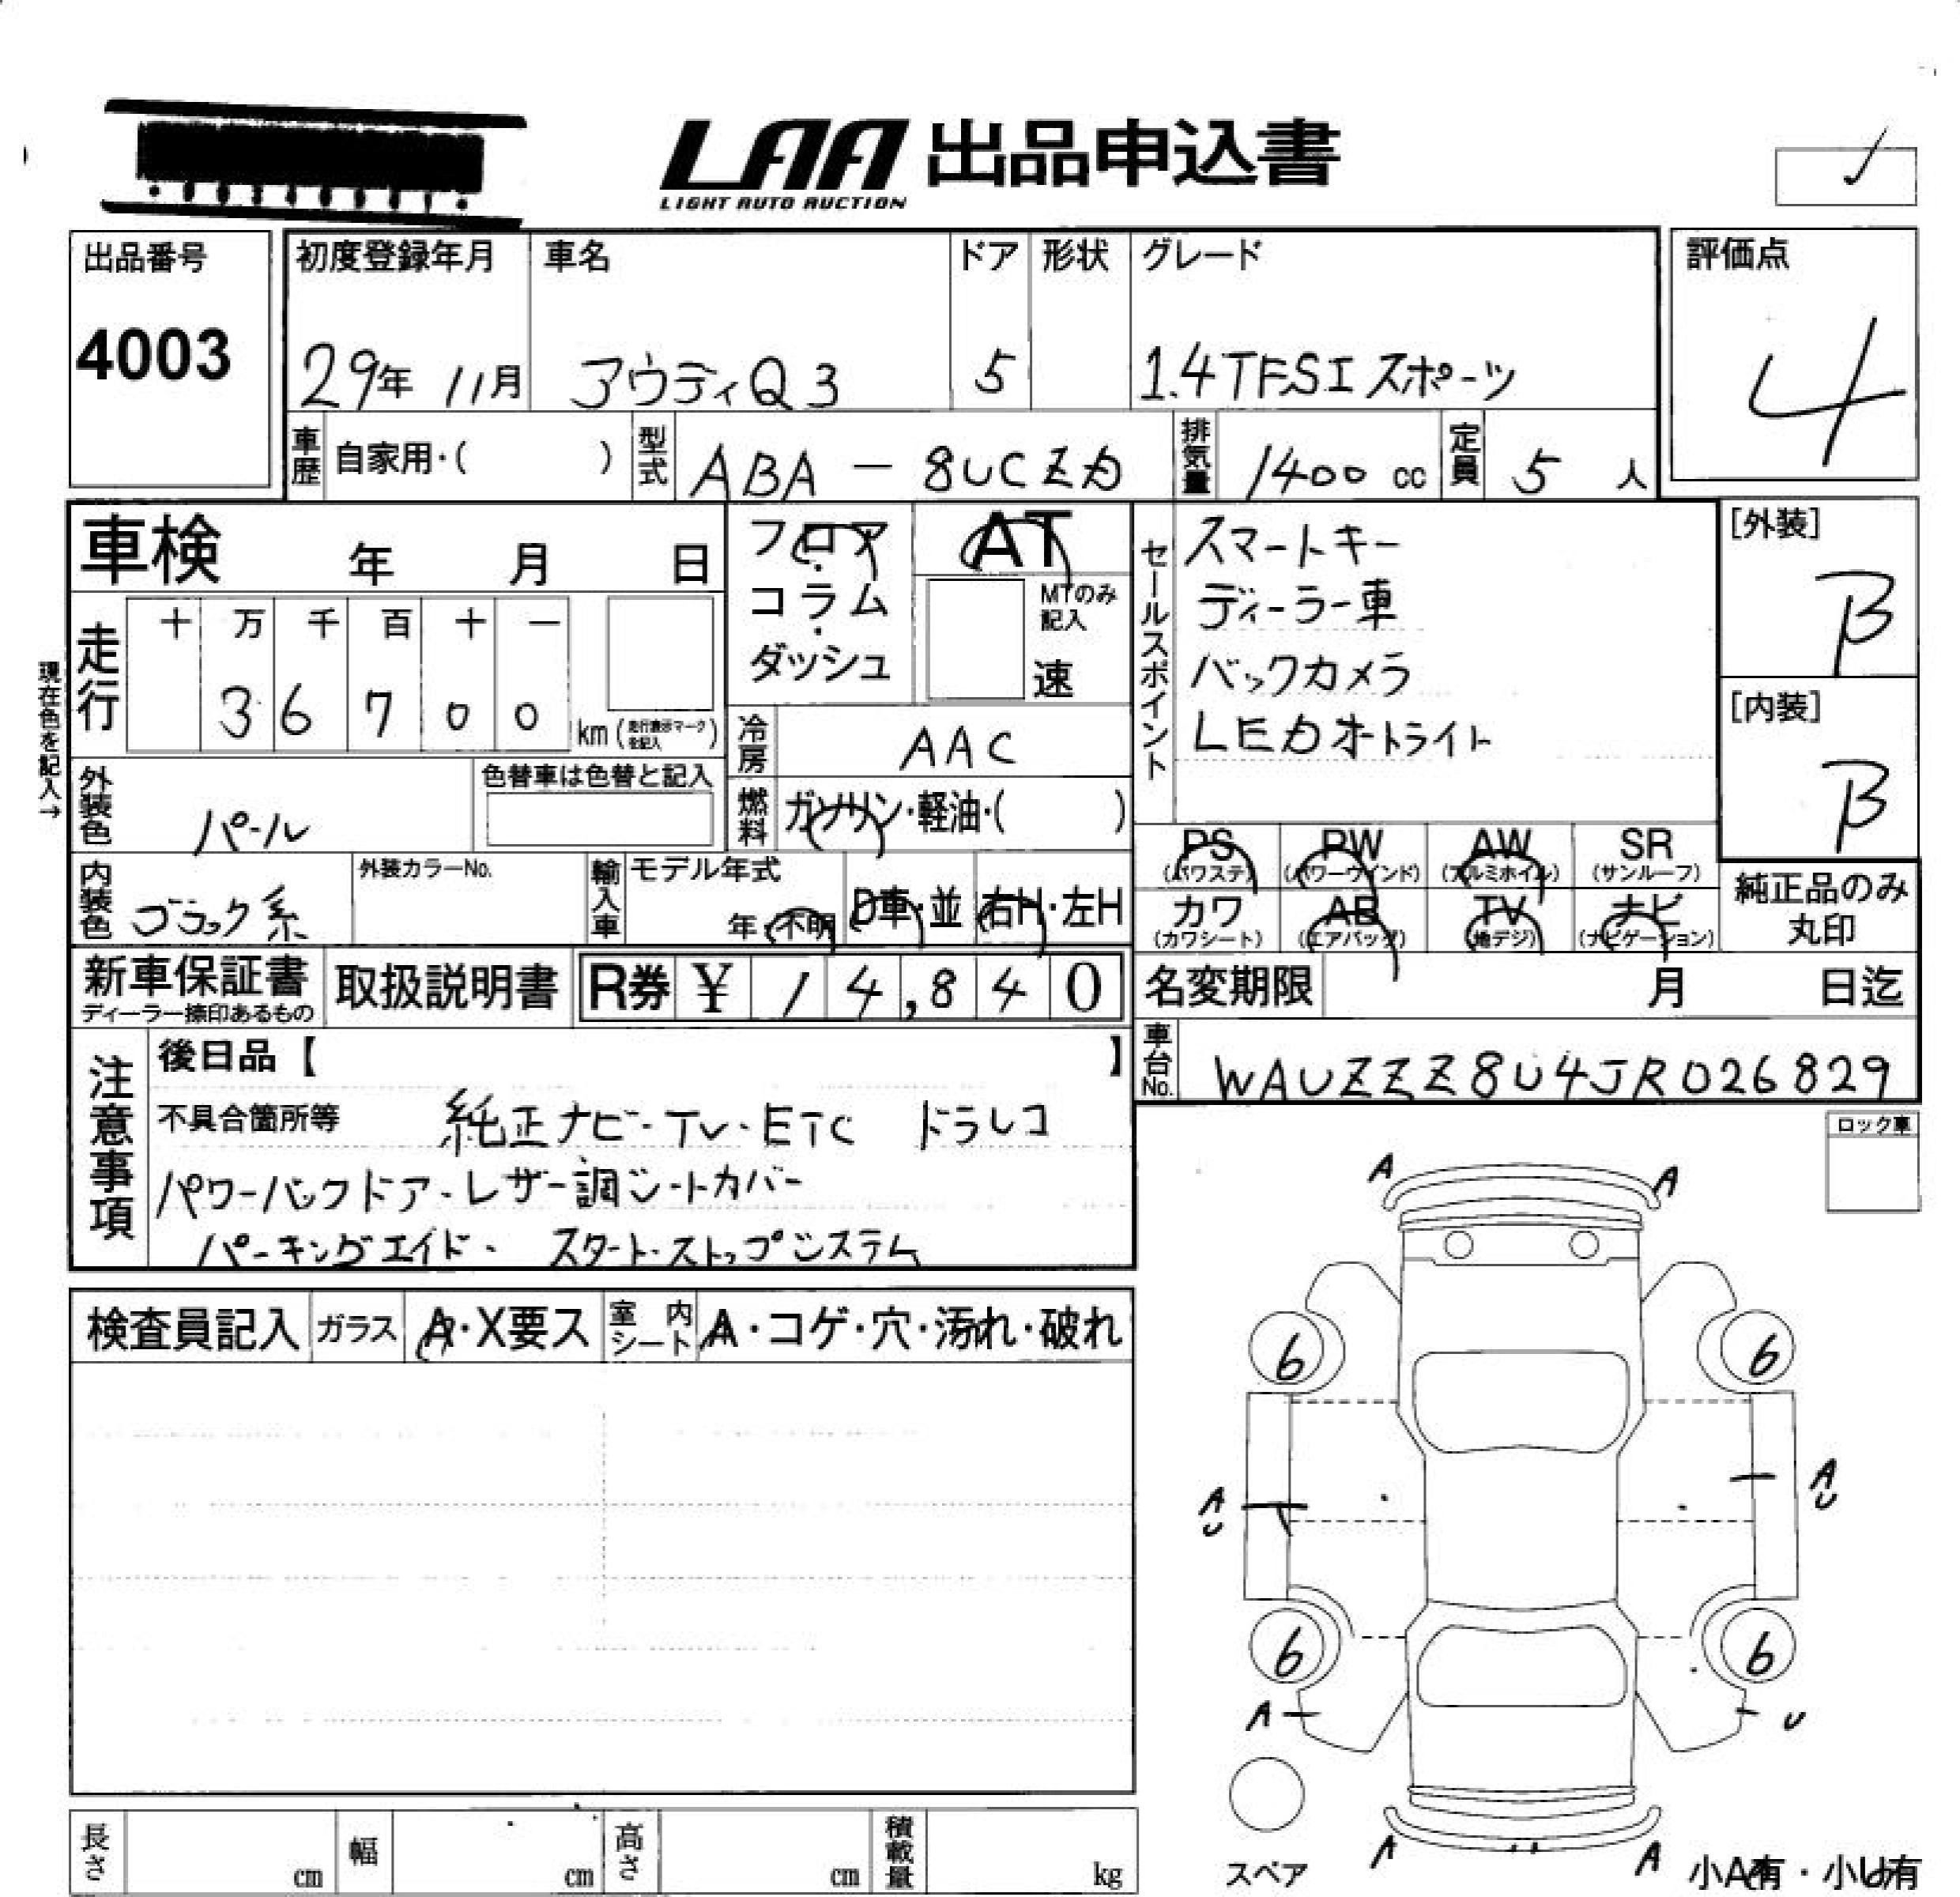 LAA 出品申込書
LIGHT AUTO AUCTION
出品番号
4003
初度登録年月 車名 ドア 形状 グレード
29年 11月 アウディQ3 5 1.4TFSIスポーツ
評価点
4
車歴 自家用・( ) 型式 ABA-8UCZD 排気量 1400 cc 定員 5 人
車検 年 月 日
フロア・コラム・ダッシュ
AT
MTのみ記入
速
セールスポイント
スマートキー
ディーラー車
バックカメラ
LEDオートライト
[外装]
B
[内装]
B
現在色を記入→
走行 十 万 千 百 十 一
3 6 7 0 0 km (走行表示マークを記入)
冷房 AAC
燃料 ガソリン・軽油・( )
外装色 パール
色替車は色替と記入
内装色 ブラック系
外装カラーNo.
輸入車 モデル年式 年・不明 D車・並 右H・左H
PS (パワステ) PW (パワーウインド) AW (アルミホイル) SR (サンルーフ)
カワ (カワシート) AB (エアバッグ) TV (地デジ) ナビ (ナビゲーション)
純正品のみ丸印
新車保証書
ディーラー捺印あるもの
取扱説明書 R券 ¥ 14,840
名変期限 月 日迄
車台No. WAUZZZ8U4JR026829
注意事項
後日品【 】
不具合箇所等 純正ナビ・TV・ETC ドラレコ
パワーバックドア・レザー調シートカバー
パーキングエイド・ スタート・ストップシステム
ロック車
検査員記入 ガラス A・X要ス 室内シート A・コゲ・穴・汚れ・破れ
A A
6 6
A U A U
6 6
A U
A A
スペア
小A有・小U有
長さ cm 幅 cm 高さ cm 積載量 kg